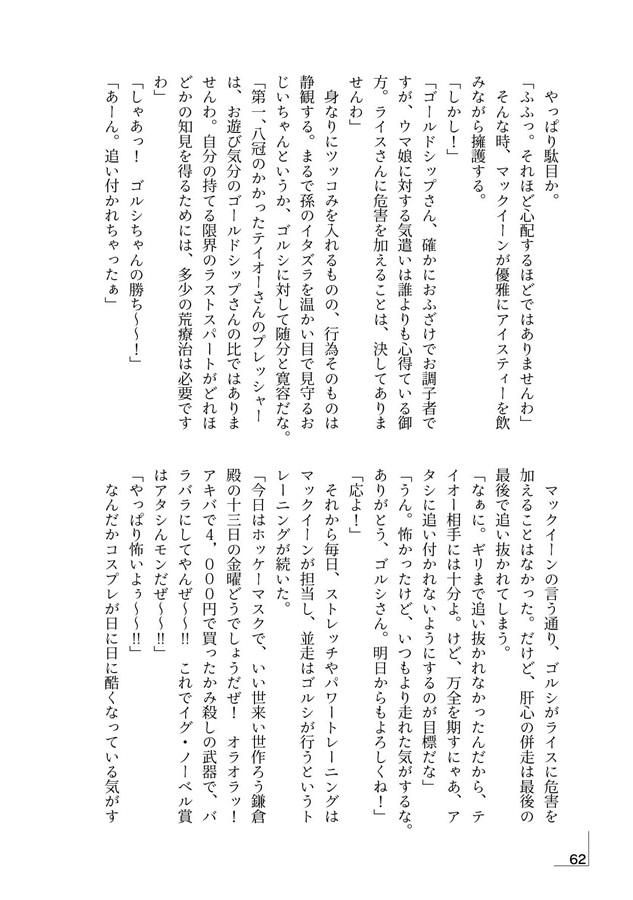 やっぱり駄目か。
「ふふっ。それほど心配するほどではありませんわ」
そんな時、マックイーンが優雅にアイスティーを飲
みながら擁護する。
「しかし！」
「ゴールドシップさん、確かにおふざけでお調子者で
すが、ウマ娘に対する気遣いは誰よりも心得ている御
方。ライスさんに危害を加えることは、決してありま
せんわ」
身なりにツッコみを入れるものの、行為そのものは
静観する。まるで孫のイタズラを温かい目で見守るお
じいちゃんというか、ゴルシに対して随分と寛容だな。
「第一、八冠のかかったテイオーさんのプレッシャー
は、お遊び気分のゴールドシップさんの比ではありま
せんわ。自分の持てる限界のラストスパートがどれほ
どかの知見を得るためには、多少の荒療治は必要です
わ」
「しゃあっ！　ゴルシちゃんの勝ち〜〜！」
「あーん。追い付かれちゃったぁ」
マックイーンの言う通り、ゴルシがライスに危害を
加えることはなかった。だけど、肝心の併走は最後の
最後で追い抜かれてしまう。
「なぁに。ギリまで追い抜かれなかったんだから、テ
イオー相手には十分よ。けど、万全を期すにゃあ、ア
タシに追い付かれないようにするのが目標だな」
「うん。怖かったけど、いつもより走れた気がするな。
ありがとう、ゴルシさん。明日からもよろしくね！」
「応よ！」
それから毎日、ストレッチやパワートレーニングは
マックイーンが担当し、並走はゴルシが行うというト
レーニングが続いた。
「今日はホッケーマスクで、いい世来い世作ろう鎌倉
殿の十三日の金曜どうでしょうだぜ！　オラオラッ！
アキバで4，000円で買ったかみ殺しの武器で、バ
ラバラにしてやんぜ〜〜‼　これでイグ・ノーベル賞
はアタシんモンだぜ〜〜‼」
「やっぱり怖いよぅ〜〜‼」
なんだかコスプレが日に日に酷くなっている気がす
62